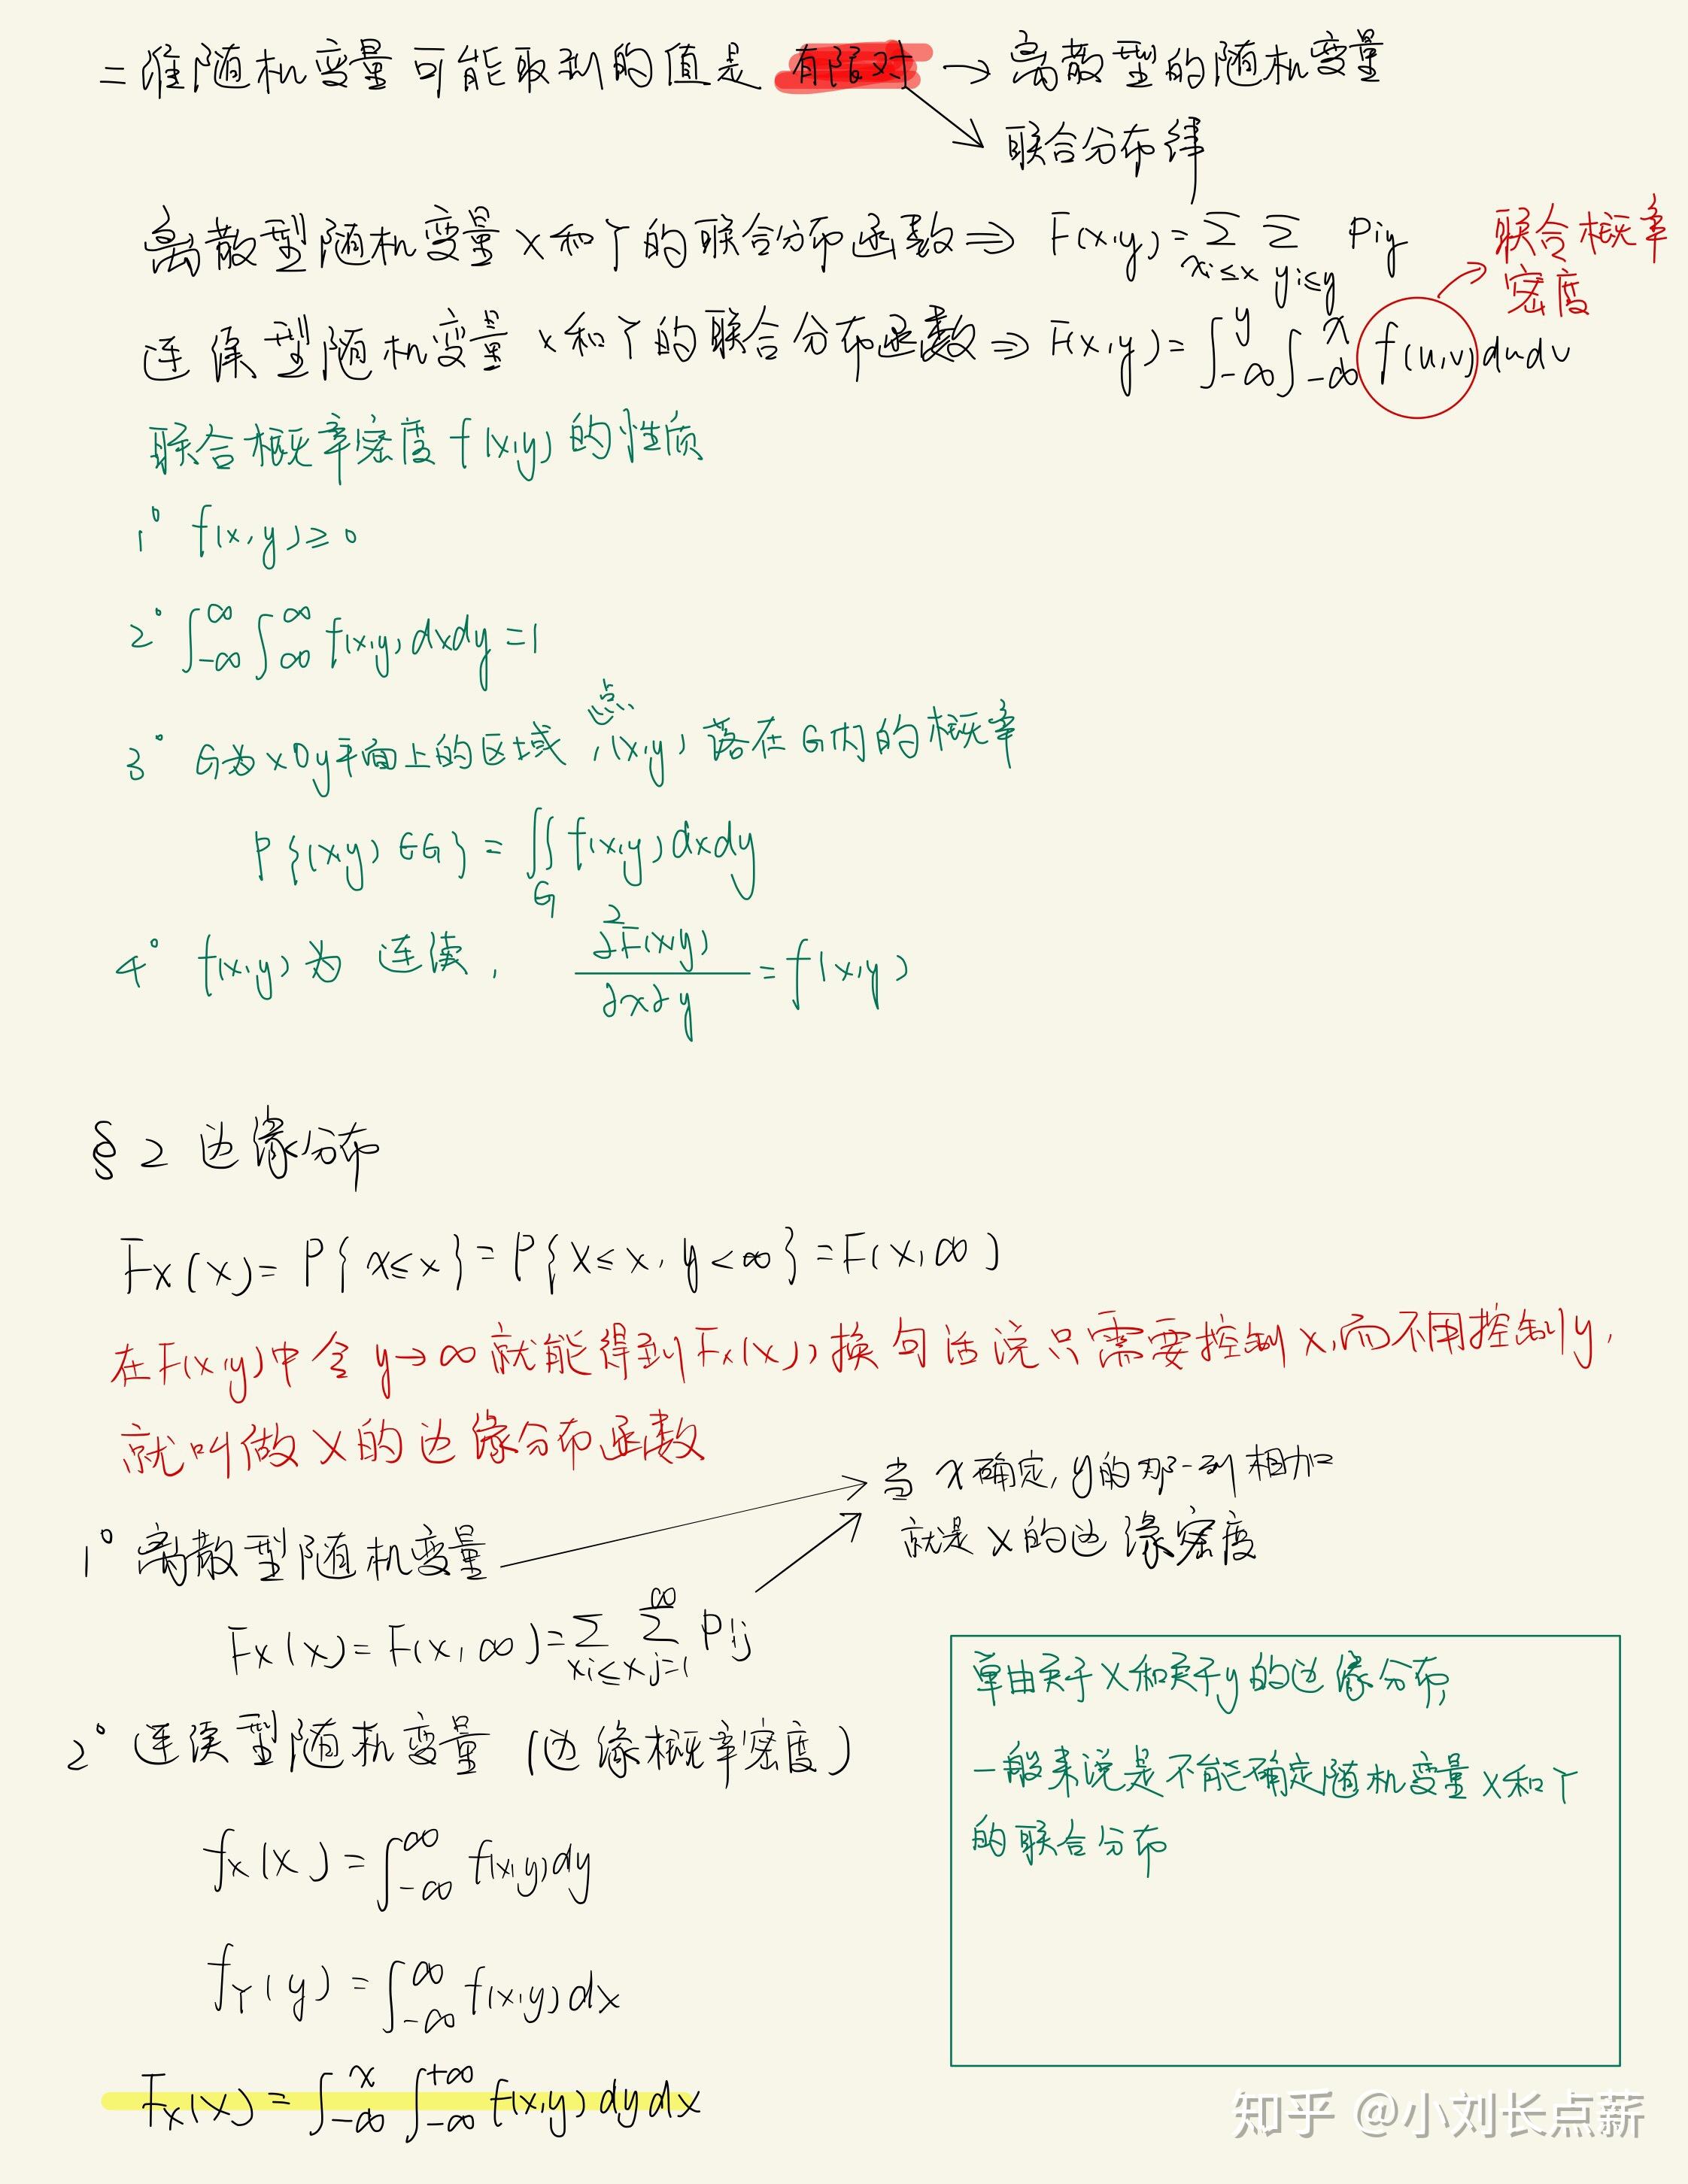 二维随机变量可能取到的值是 有限对 → 离散型的随机变量
联合分布律
离散型随机变量X和Y的联合分布函数 ⇒ F(x,y)=∑_{xi≤x} ∑_{yi≤y} Piy
联合概率
密度
连续型随机变量X和Y的联合分布函数 ⇒ F(x,y)=∫_{-∞}^{y}∫_{-∞}^{x} f(u,v)dudv
联合概率密度f(x,y)的性质
1° f(x,y)≥0
2° ∫_{-∞}^{∞}∫_{∞}^{∞} f(x,y)dxdy=1
3° G为xOy平面上的区域,点(x,y)落在G内的概率
P{(x,y)∈G}=∬_G f(x,y)dxdy
4° f(x,y)为 连续, ∂²F(x,y)/∂x∂y=f(x,y)
§2 边缘分布
Fx(x)=P{x≤x}=P{X≤x,y<∞}=F(x,∞)
在F(x,y)中令y→∞就能得到Fx(x),换句话说只需要控制x,而不用控制y,
就叫做X的边缘分布函数
当x确定,y的那一列相加
就是X的边缘密度
1° 离散型随机变量
Fx(x)=F(x,∞)=∑_{xi≤x} ∑_{j=1}^{∞} Pij
2° 连续型随机变量(边缘概率密度)
fx(x)=∫_{-∞}^{∞} f(x,y)dy
fY(y)=∫_{-∞}^{∞} f(x,y)dx
Fx(x)=∫_{-∞}^{x}∫_{-∞}^{+∞} f(x,y)dydx
单由关于X和关于y的边缘分布,
一般来说是不能确定随机变量X和Y
的联合分布
知乎 @小刘长点薪